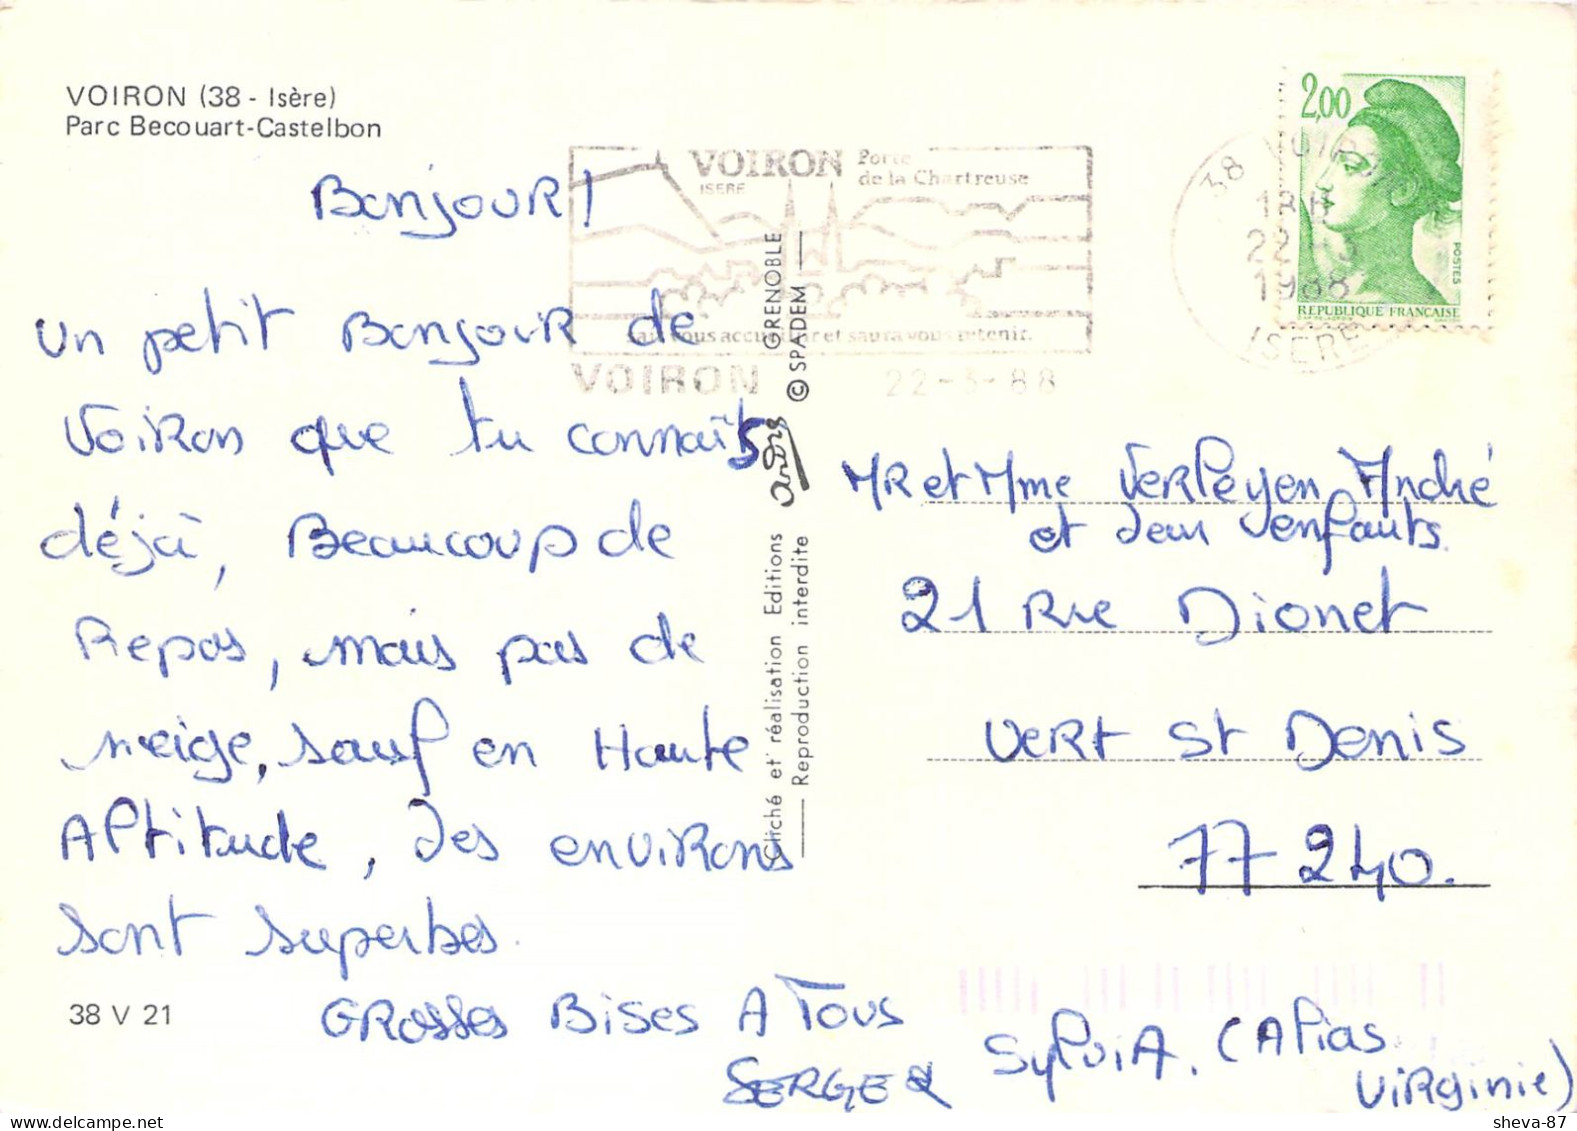 VOIRON (38 - Isère)
Parc Becouart-Castelbon
Bonjour!
Un petit Bonjour de
Voiron que tu connaîts
déjà, Beaucoup de
Repos, mais pas de
neige, sauf en Haute
Altitude, des environs
sont superbes.
GROSSES BISES A TOUS
SERGE & SylviA. (Alias
Virginie)
38 V 21
VOIRON Porte
ISERE de la Chartreuse
sait vous accueillir et saura vous retenir.
VOIRON 22-3-88
38 VOIRON
18H
22-3
1988
ISERE
2,00
POSTES
REPUBLIQUE FRANÇAISE
Cliché et réalisation Editions andris GRENOBLE
Reproduction interdite © SPADEM
MR et Mme Verleyen André
et leur enfants.
21 Rue Dionet
Vert St Denis
77240.
sheva-87